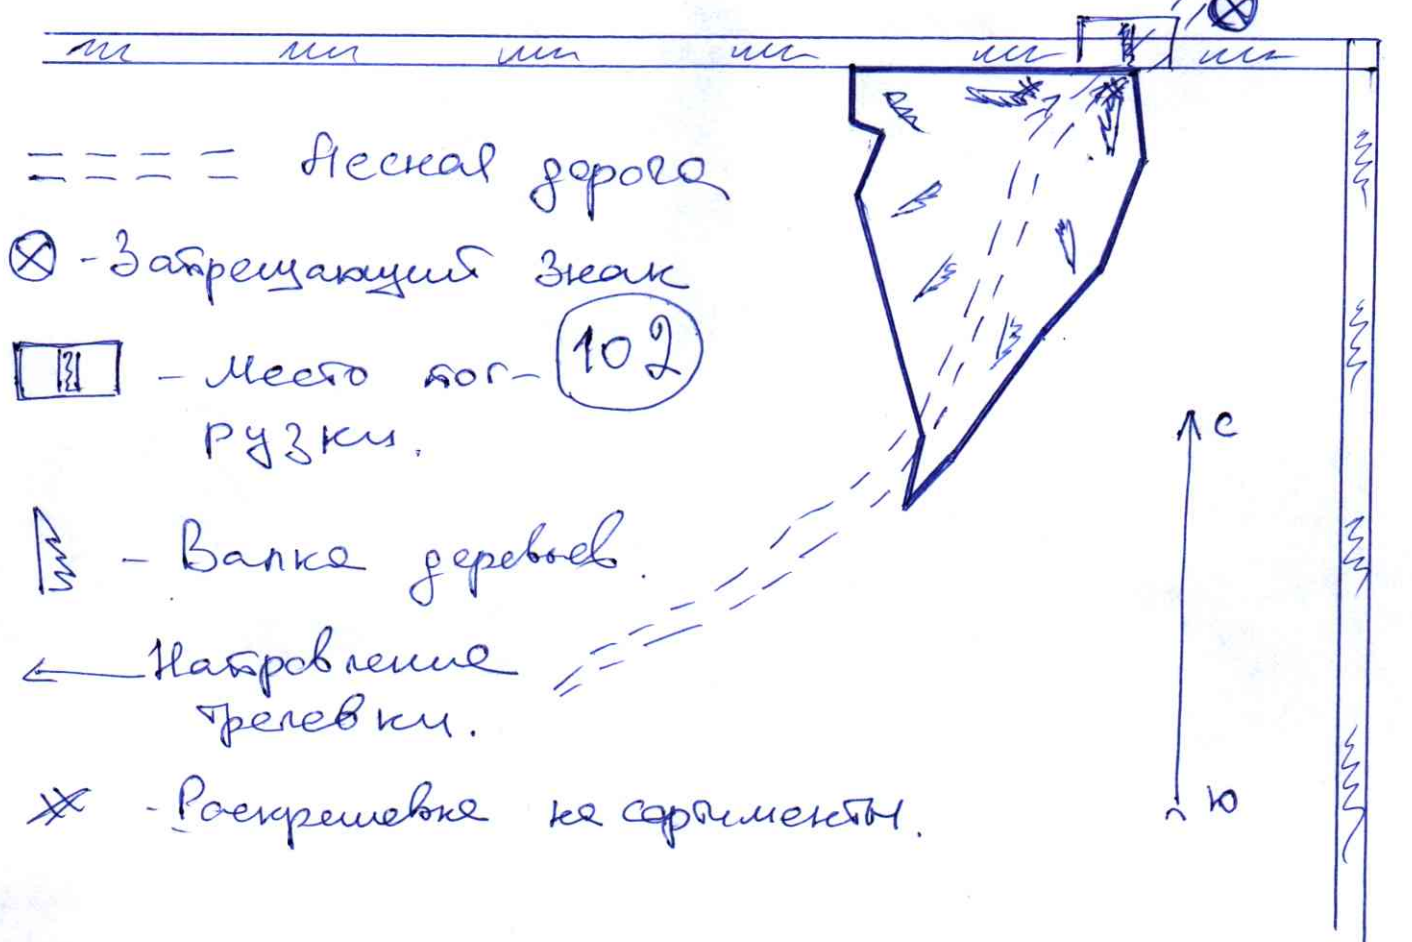 Лесная дорога
- Запрещающий знак
- Место пог-
рузки.
102
- Валка деревьев.
Направление
трелевки.
- Раскрешевка на сортименты.
С
Ю